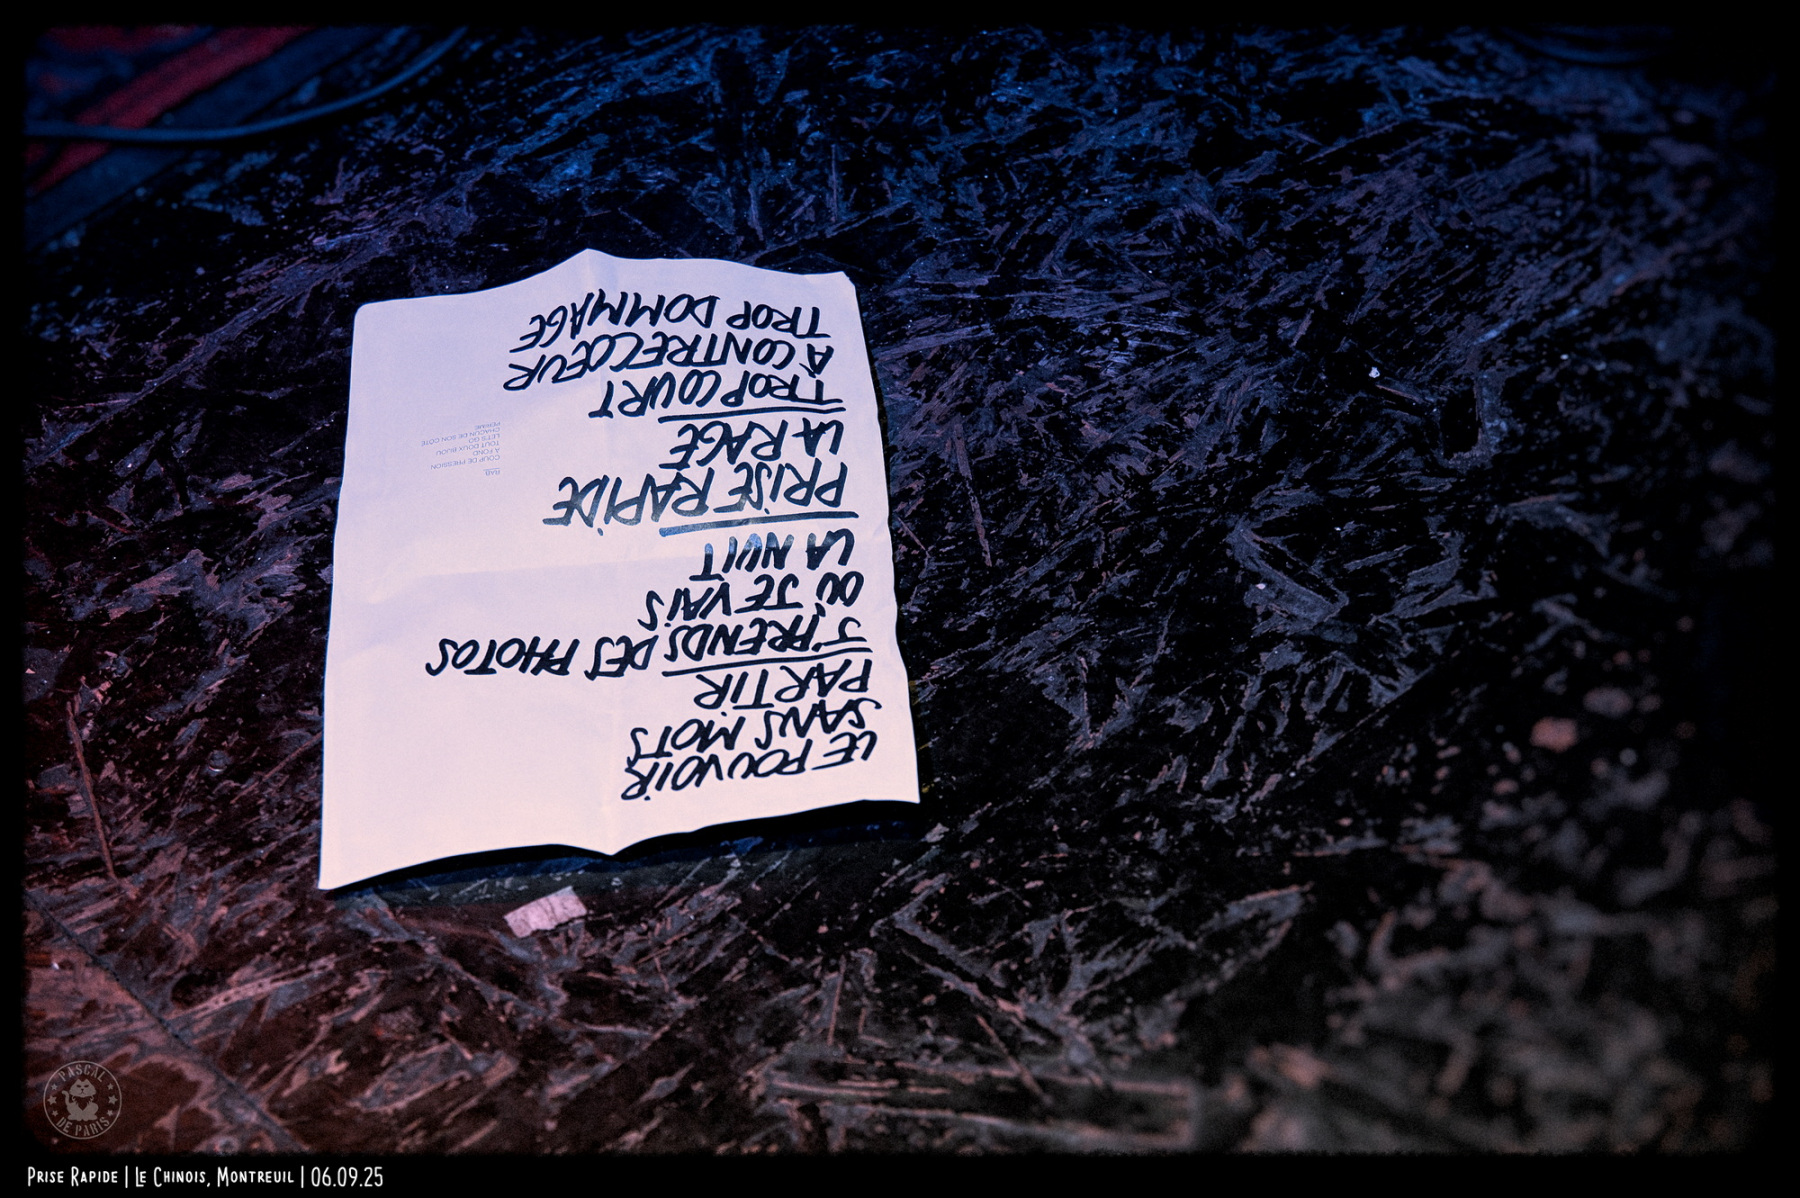 LE POUVOIR
SANS MOTS
PARTIR
J'PRENDS DES PHOTOS
OÙ JE VAIS
LA NUIT
PRISE RAPIDE
LA RAGE
TROP COURT
À CONTRECŒUR
TROP DOMMAGE
RAB
COUP DE PRESSION
À FOND
TOUT DOUX BIJOU
LET'S GO
CHACUN DE SON CÔTÉ
PASCAL
DE PARIS
PRISE RAPIDE | LE CHINOIS, MONTREUIL | 06.09.25